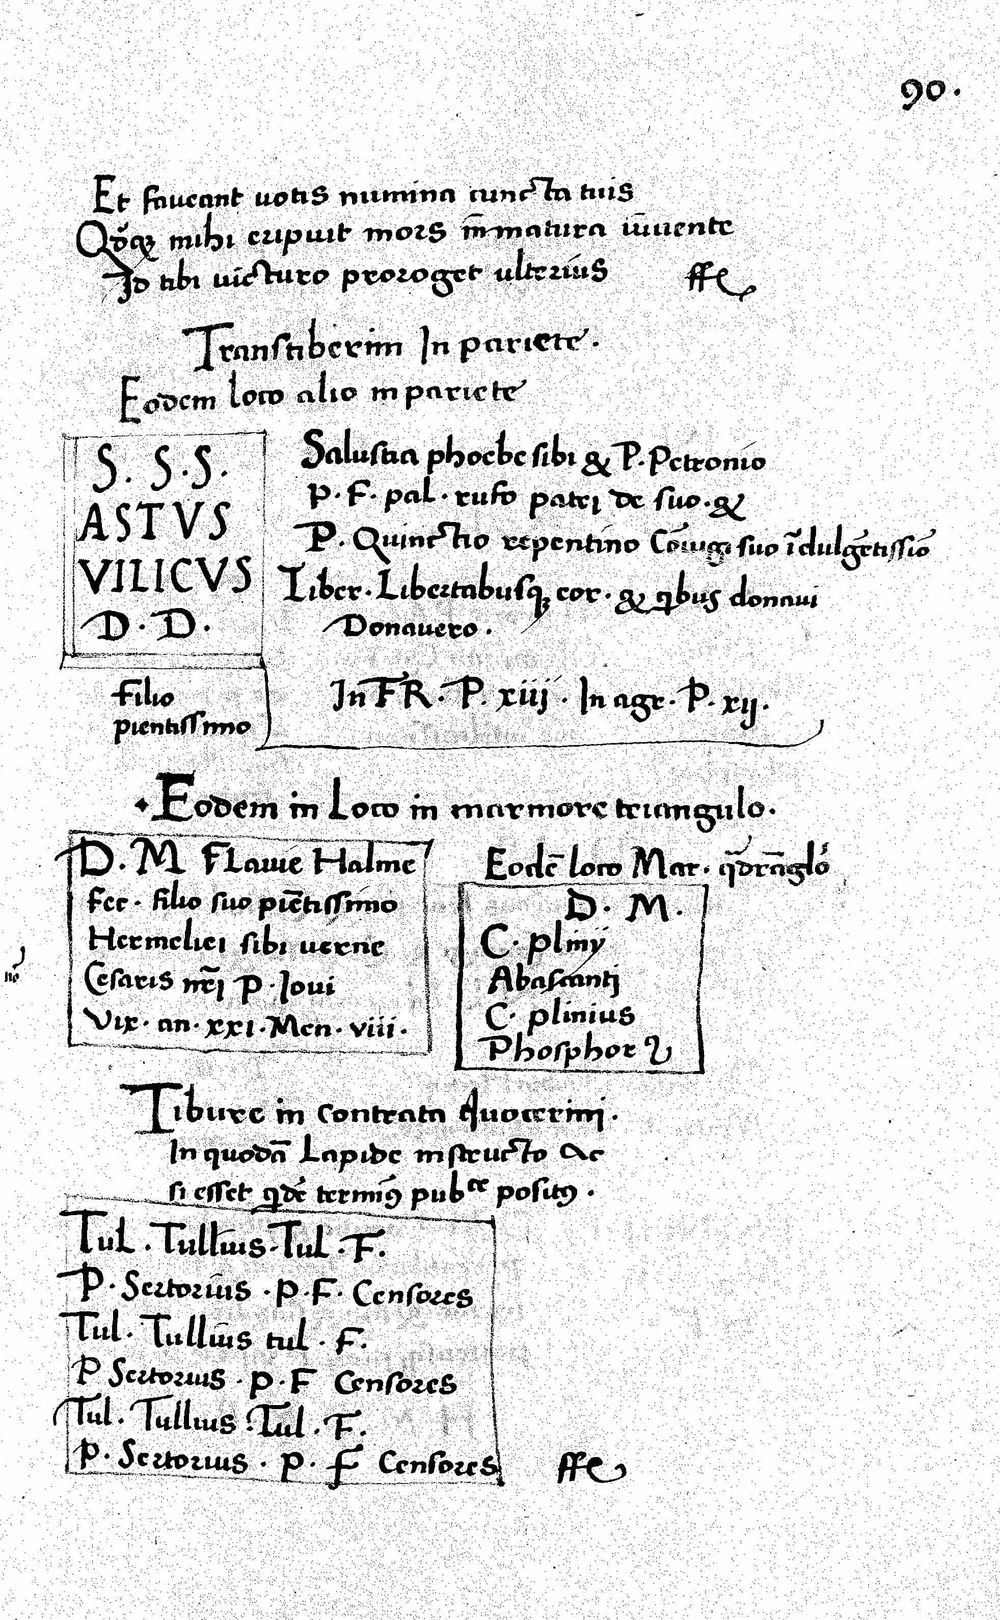 90.
Et faueant uotis numina cuncta tuis
Qđq̃ mihi eripuit mors īmmatura iuuente
Id tibi uicturo proroget ulterius ffe
Transtiberim In pariete.
Eodem loco alio in pariete
S. S. S.
ASTVS
VILICVS
D. D.
Filio
pientissimo
Salustia phoebe sibi & P. Petronio
P. F. pal. rufo patri de suo. &
P. Quinctio repentino Cōiugi suo īdulgētissīo
Liber. Libertabusq; eor. & qbus donaui
Donauero.
In FR. P. xiij. In agr. P. xij.
Eodem in Loco in marmore triangulo.
D. M Flauie Halme
Fec. filio suo piētissimo
Hermeliei sibi uerne
Cesaris nr̄i P. Ioui
Vix. an. xxi. Men. viii.
Eodē loco Mar. qdrāglo
D. M.
C. plinij
Abascanti
C. plinius
Phosphor
Tibure in contrata quocerini.
In quodā Lapide instructo Ac
si esset qdē termin9 pubce posit9.
Tul. Tullius. Tul. F.
P. Sertorius. P. F. Censores
Tul. Tullius tul. F.
P Sertorius. P. F Censores
Tul. Tullius. Tul. F.
P. Sertorius. P. F Censores ffe